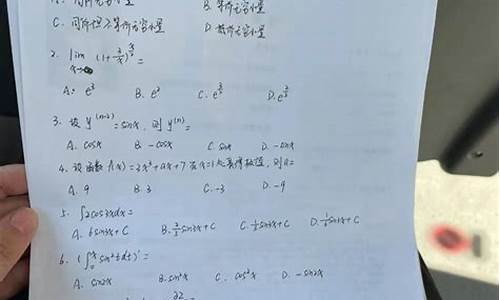 A. 同阶无穷小量 B. 等价无穷小量
C. 同阶但不等价无穷小量 D. 高阶无穷小量
2. lim x→∞ (1+2/x)^ =
A. e³ B. e² C. e D. e
3. 设 y⁽ⁿ⁻²⁾ = sinx, 则 y⁽ⁿ⁾ =
A. cosx B. -cosx C. sinx D. -sinx
4. 设函数 f(x)=2x³+ax+7 在x=1处取得极值, 则a=
A. 9 B. 3 C. -3 D. -9
5. ∫2cos3xdx=
A. 6sin3x+C B. 2/3 sin3x+C C. 1/3 sin3x+C D. 1/6 sin3x+C
6. (∫₀ˣ sin²tdt)' =
A. sin2x B. sin²x C. cos²x D. -sin2x